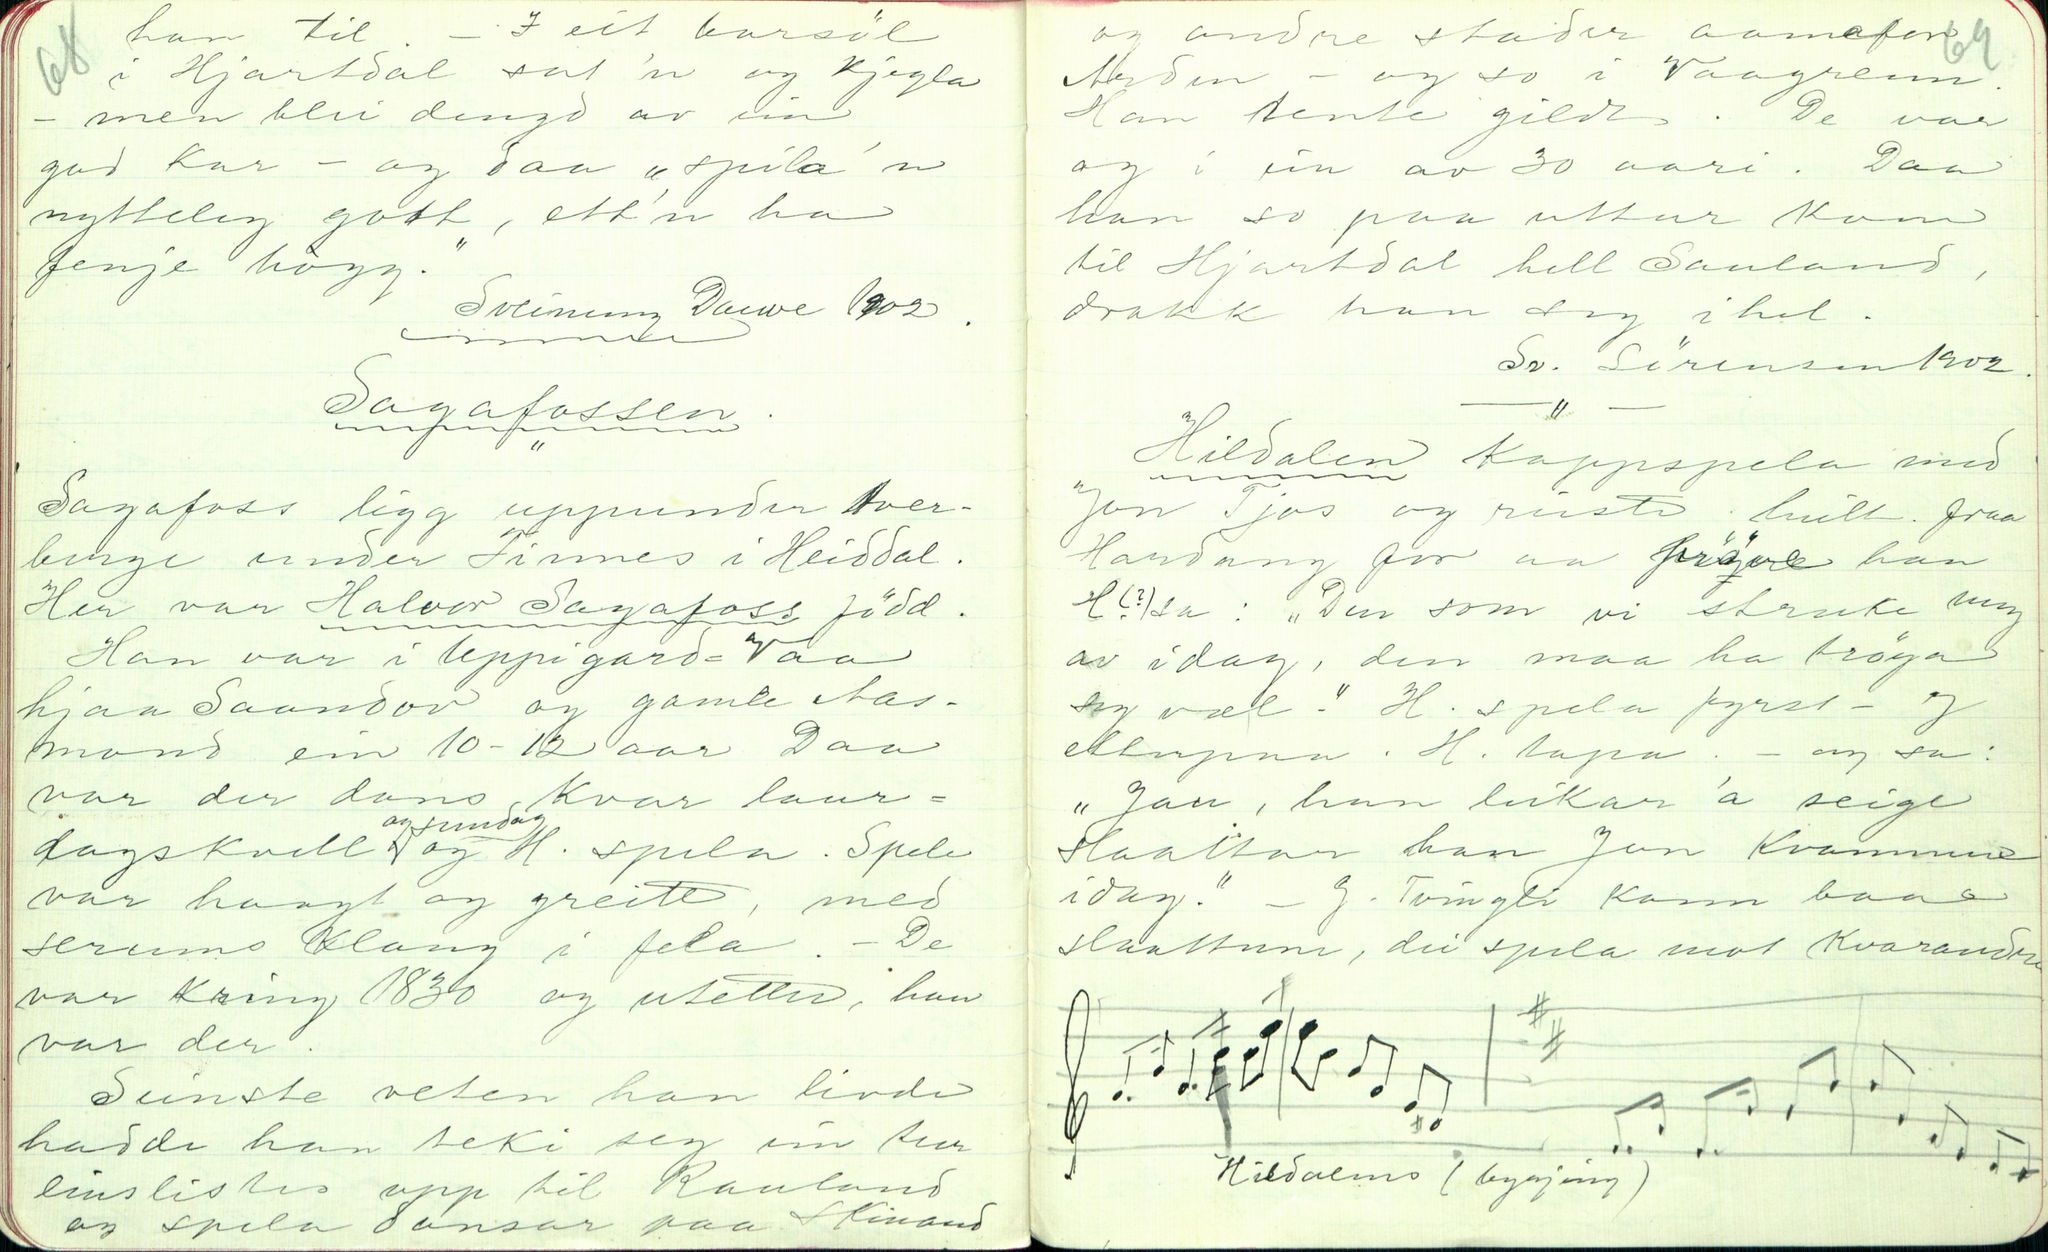 68
han til. – I eit barsöl
i Hjartdal sat'n og kjegla
– men blei dengd av ein
god kar – og daa „spila'n
nytteleg gott, ett'n ha
fenje högg."
Sveinung 1902.
Sagafossen.
"
Sagafoss ligg uppunder Aver-
berge under Tinnes i Heiddal.
Her var Halvor Sagafoss född.
Han var i Uppigard-Vaa
hjaa Saandov og gamle Aas-
mund ein 10-12 aar Daa
var der dans kvar laur=
dagskvell og sundag og H. spela. Spele
var haagt og greitt, med
serums klang i fela. – De
var kring 1830 og utetter, han
var der.
Seinste veten han livde
hadde han teki seg ein tur
einslistes upp til Rauland
og spela dansar paa Skinand
69
og andre stader aamefor
– og so i Vaagreinn.
Han tente gildt. De var
og i ein av 30 aari. Daa
han so paa uttur kom
til Hjartdal hell Sauland,
drakk han seg ihel.
Sv. Sörensen 1902.
— " —
Hildalen kappspela med
Jon Tjos og reiste heilt fraa
Hardang for aa pröve han
H(?) sa: „Den som vi struke meg
av idag, den maa ha tröya
seg væl." H. spela fyrst – J
etterpaa. H. tapa. – og sa:
„Jau, han leikar 'a seige
slaattar han Jon Kvammen
idag." – J. Tvingli kann baae
slaattune, dei spela mot kvarandre
Hildalens (byrjing)